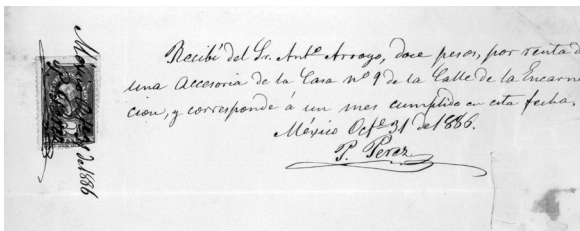 Recibí del Sr. Anto. Arroyo, doce pesos, por renta d
una accesoria de la Casa no. 9 de la Calle de la Encarna
cion, y corresponde á un mes cumplido en esta fecha.
México Octe. 31 de 1886.
P. Perez
México 31 de 1886